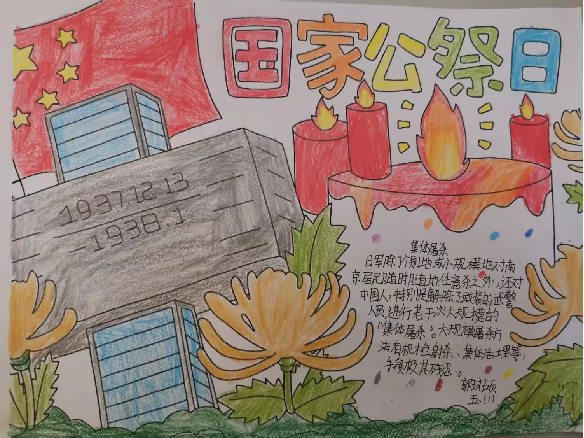 国家公祭日
1937.12.13
-1938.1
集体屠杀
日军除了个别地或小规模地对南
京居民随时随地任意杀之外,还对
中国人,特别是解除了武装的武警
人员进行若干次大规模的
"集体屠杀"。大规模屠杀方
法有机枪射杀、集体活埋等,
手段极其残忍。
五.(1)